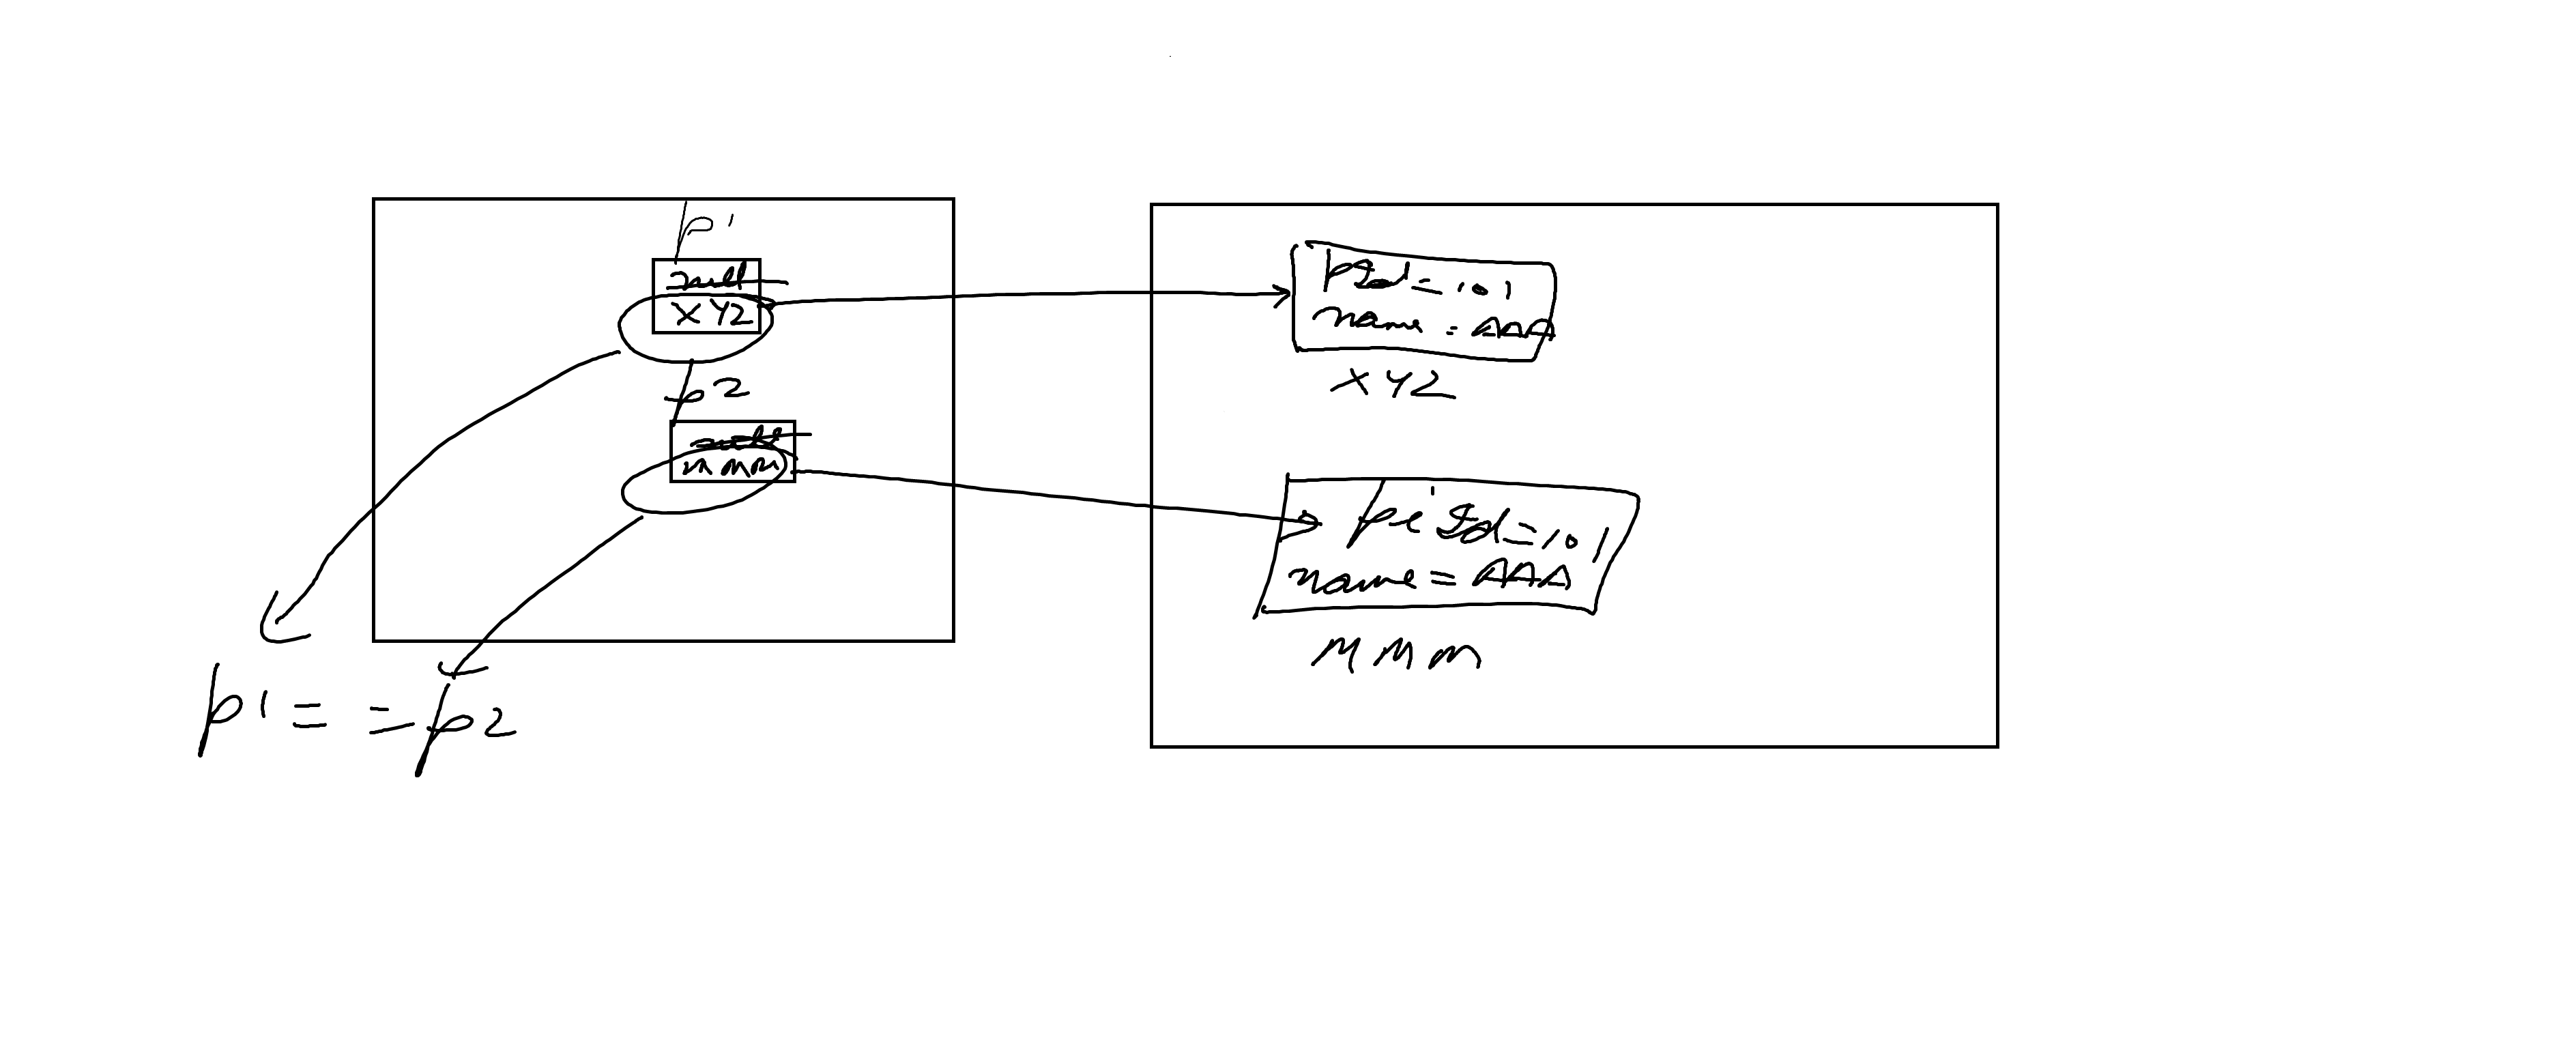 p1
null
XYZ
p2
null
MMM
p1 = = p2
PId = 101
name = AAA
XYZ
pr Id = 101
name = AAA
MMM